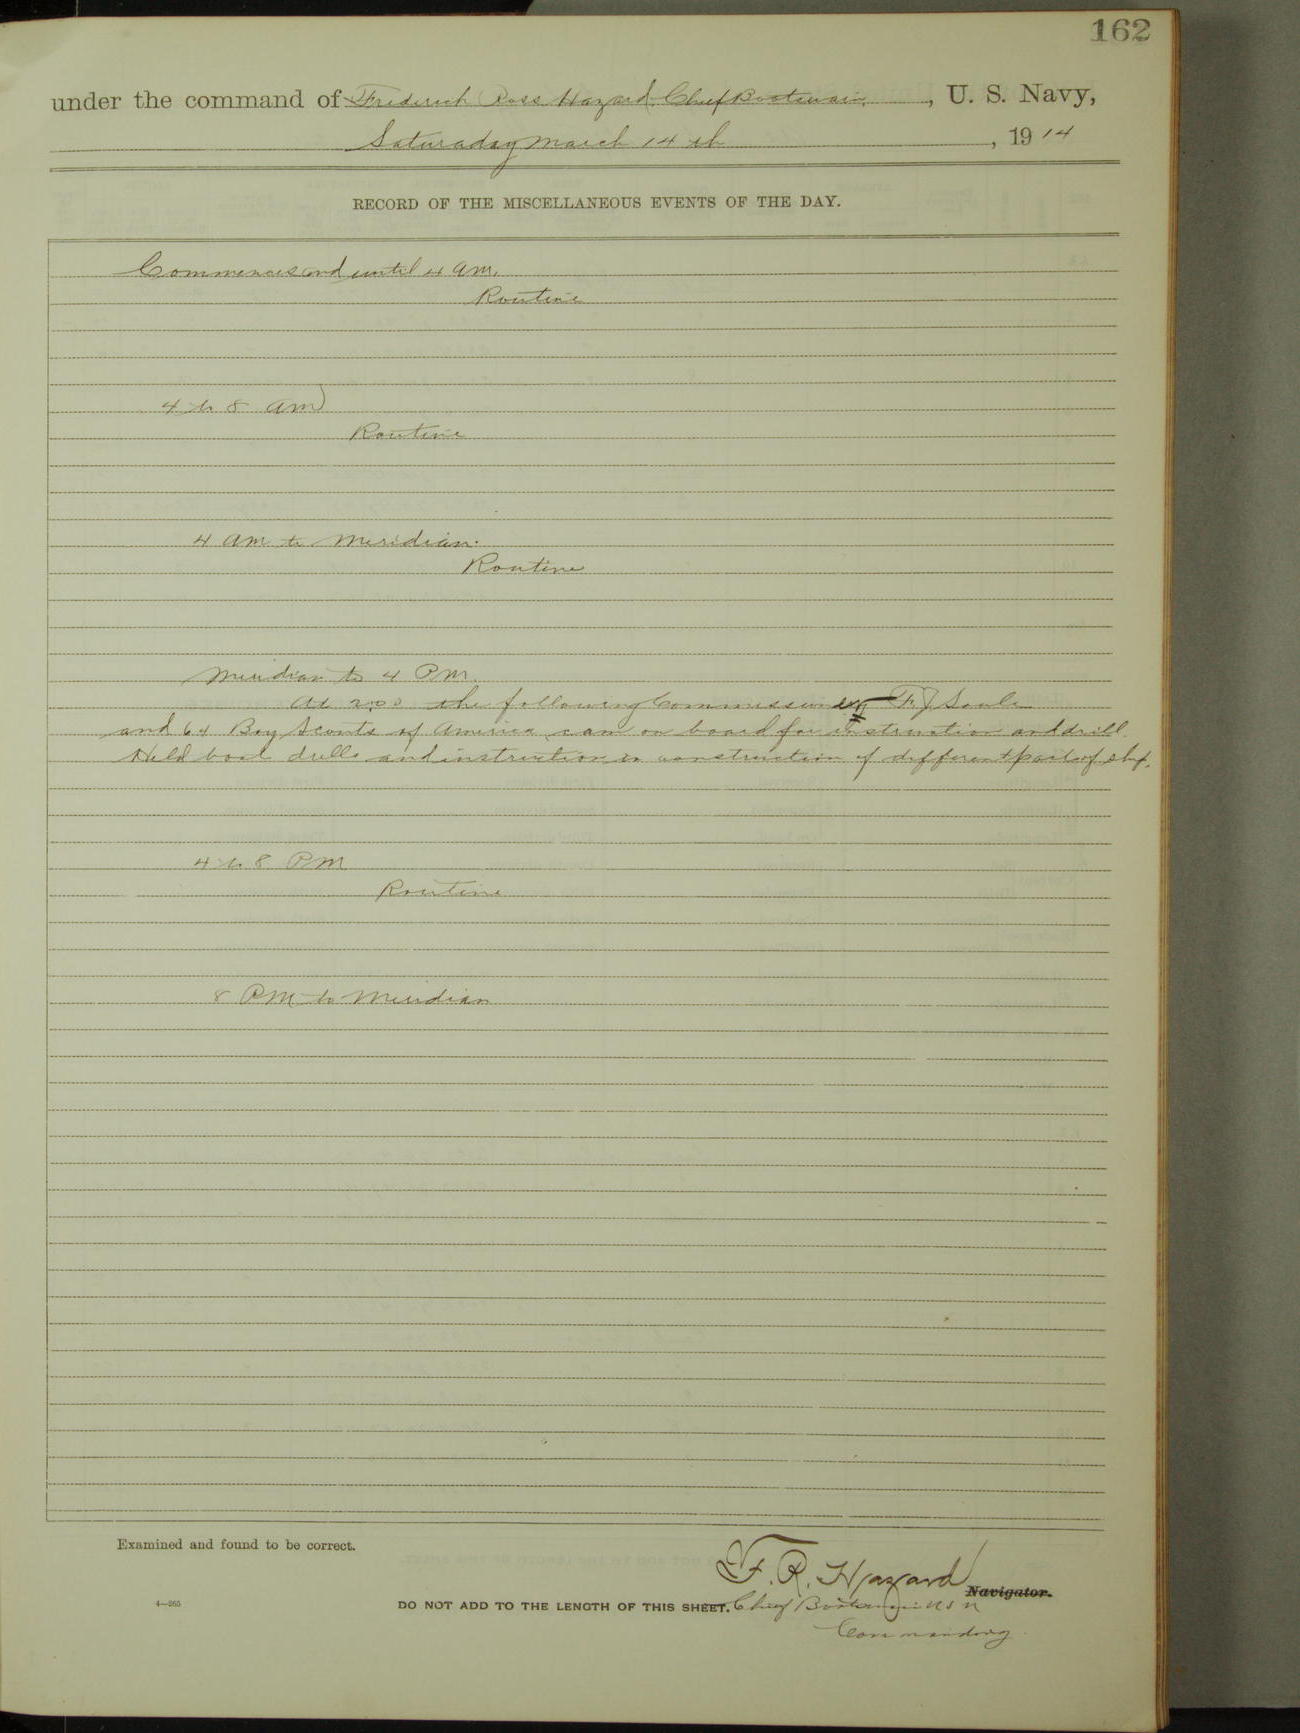 162
under the command of Frederick Ross Hazard, Chief Boatswain, U. S. Navy,
Saturaday March 14 th, 1914
RECORD OF THE MISCELLANEOUS EVENTS OF THE DAY.
Commences and until 4 am.
Routine
4 to 8 am
Routine
4 am to Meridian.
Routine
Meridian to 4 PM.
At 2:00 the following Commissioner F. J. Soule
and 64 Boy Scouts of America cam on board for instruction and drill.
Held boat drills and instruction in construction of different part of ship.
4 to 8 PM
Routine
8 PM to Meridian
Examined and found to be correct.
F. R. Hazard
Navigator.
4—265
DO NOT ADD TO THE LENGTH OF THIS SHEET. Chief Boatswain USN
Commanding